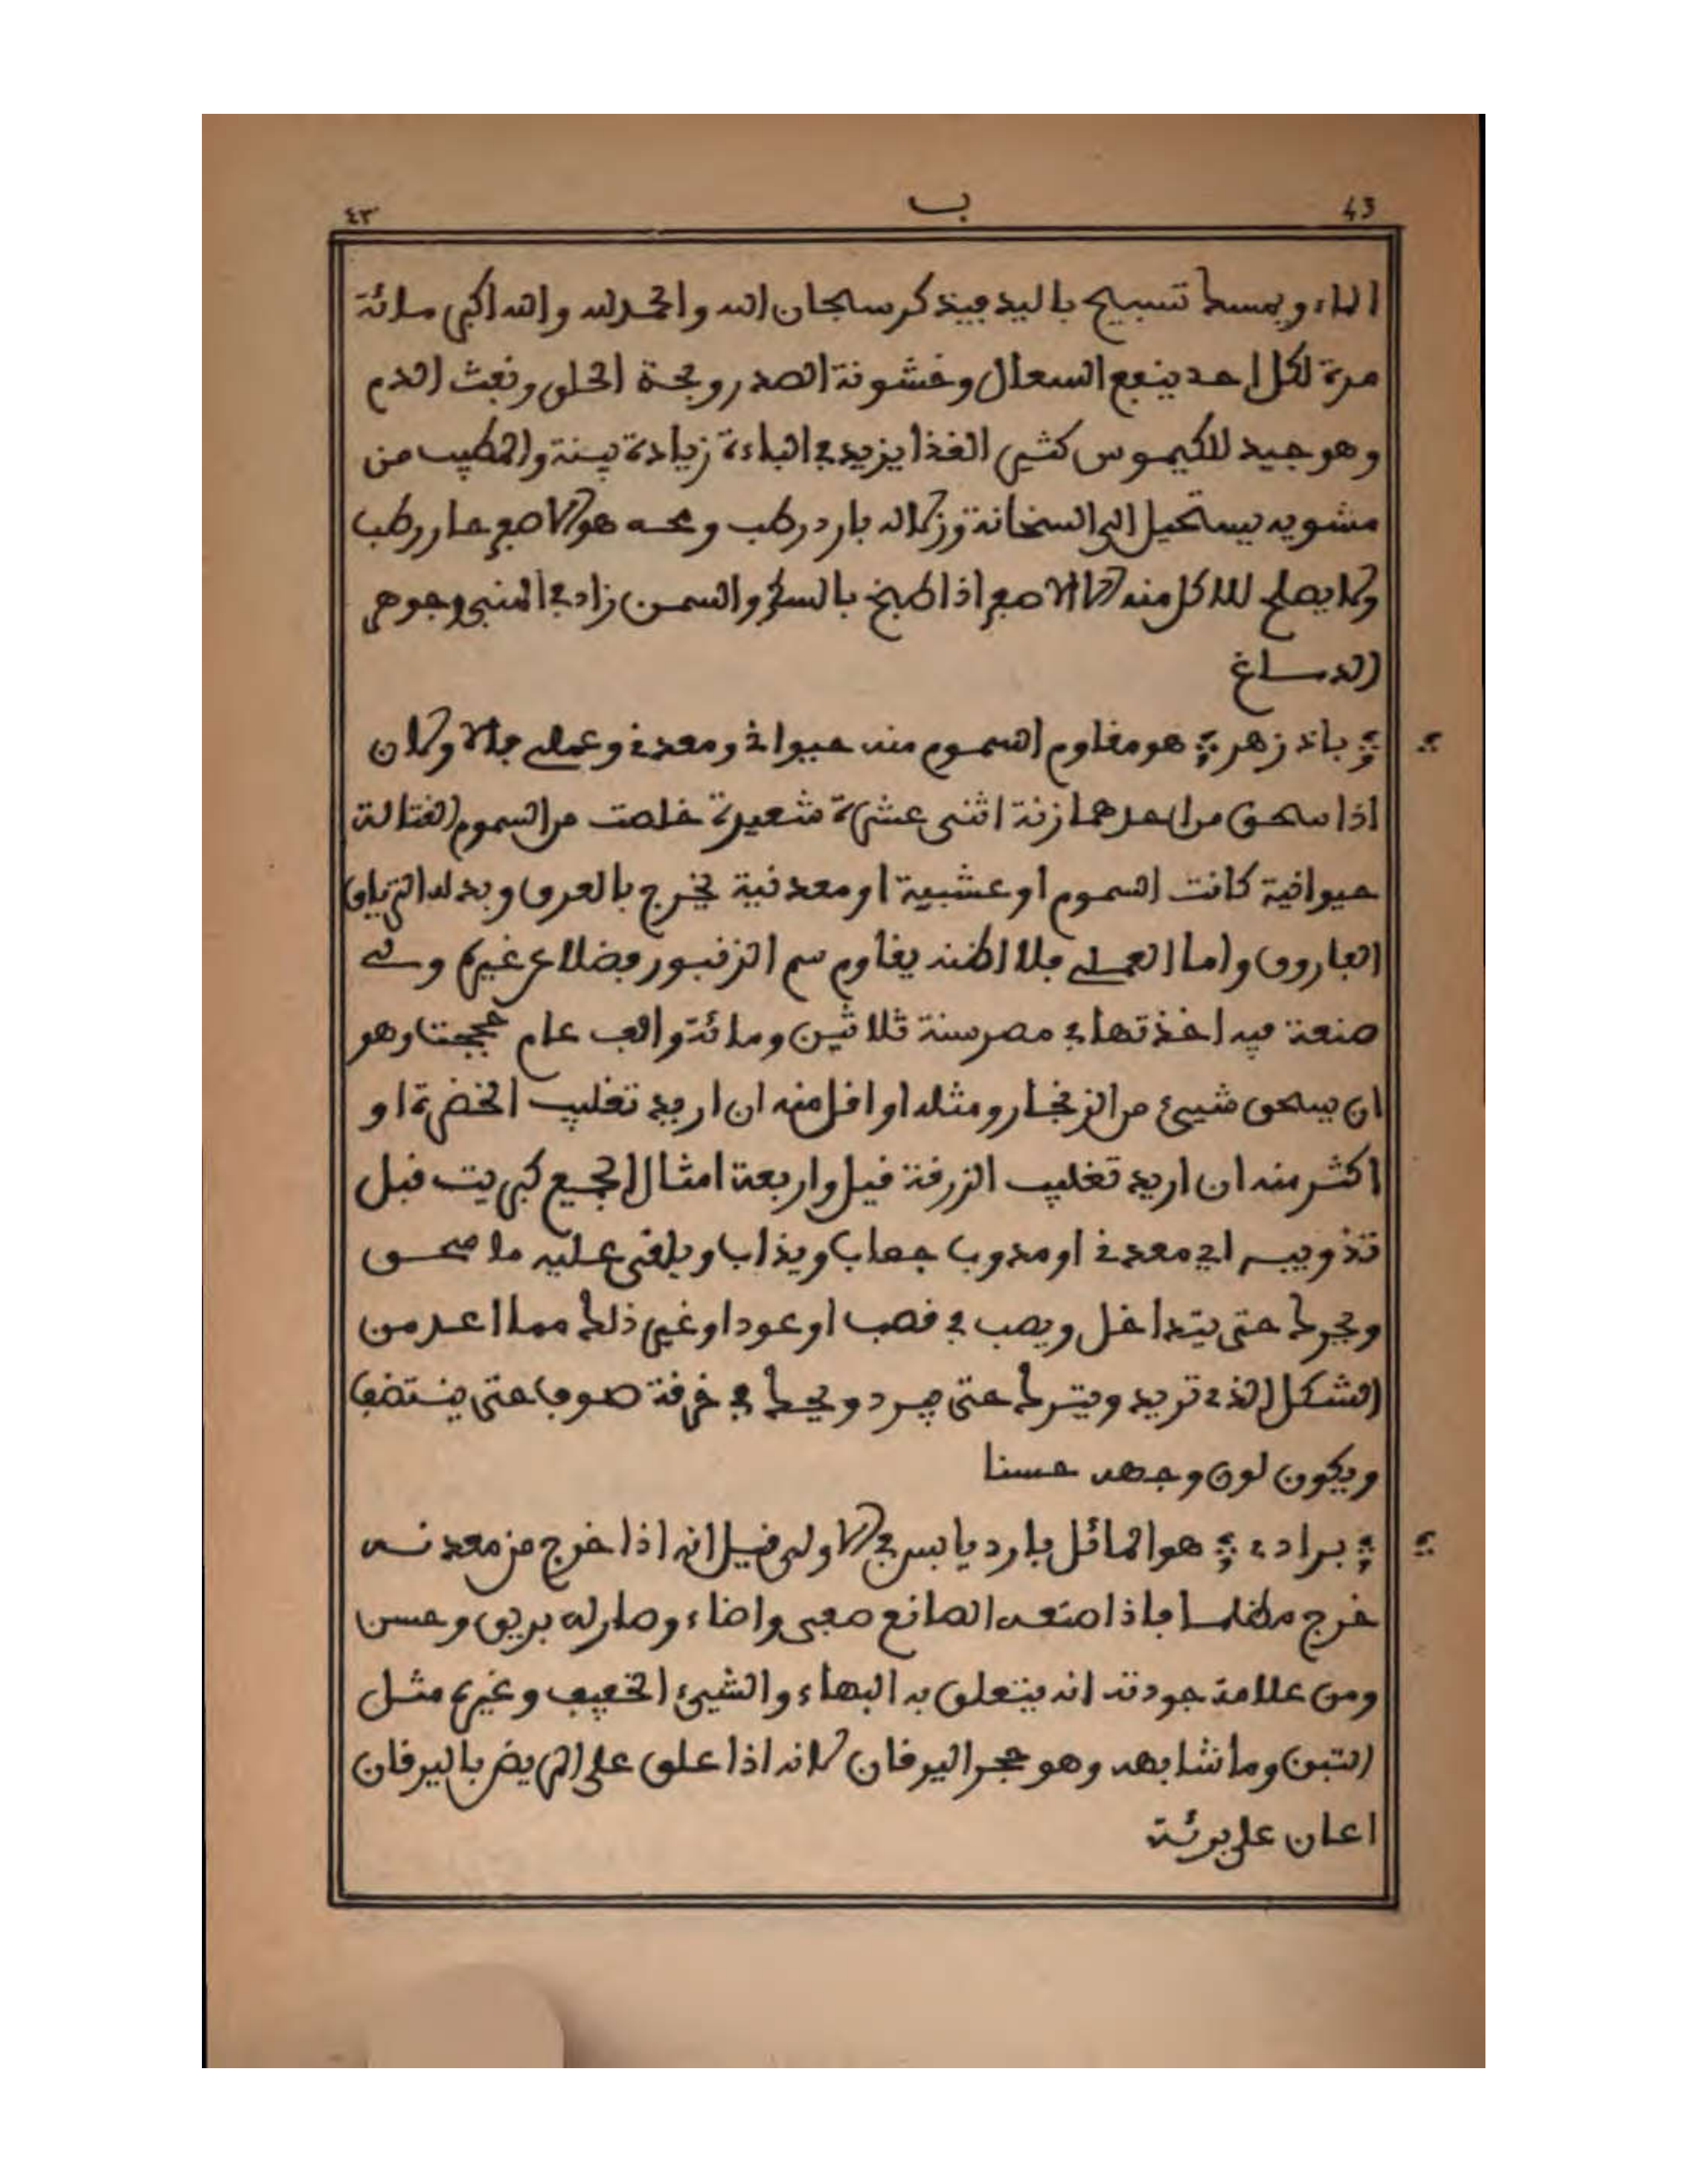 43 ب ٤٣
الماء ويمسك تسبيح باليد فيذكر سبحان الله والحمد لله والله اكبر مائة
مرة لكل احد ينفع السعال وخشونة الصدر وبحة الحلق ونفث الدم
وهو جيد للكيموس كثير الغذا يزيد في الباءة زيادة بينة والمطيب من
مشويه يستحيل الى السخانة وزلاله بارد رطب ومحه هو الاصفر حار رطب
ولا يصلح للاكل منه الا الاصفر اذا طبخ بالسكر والسمن زاد في المني وجوهر
الدماغ
باذزهر هو مقاوم السموم منه حيواني ومعدني وعملي فالاولان
اذا سحق من احدهما زنة اثنى عشرة شعيرة خلصت من السموم القتالة
حيوانية كانت السموم او عشبية او معدنية تخرج بالعرق وبدله الترياق
الفاروق واما العملي فلا اظنه يقاوم سم الزنبور فضلا عن غيره ولي
صنعة فيه اخذتها في مصر سنة ثلاثين ومائة والف عام حججت وهو
ان يسحق شيئ من الزنجار ومثله او اقل منه ان اريد تغليب الخضرة او
اكثر منه ان اريد تغليب الزرقة قيل واربعة امثال الجميع كبريت قبل
تذويبه اي معدني او مذوب جفاف ويذاب ويلقى عليه ما سحق
ويحرك حتى يتداخل ويصب في قصب او عود او غير ذلك مما اعد من
الشكل الذي تريد ويترك حتى يبرد ويحك في خرقة صوف حتى ينتضف
ويكون لون وجهه حسنا
برادي هو المائل بارد يابس في الاولى قيل انه اذا خرج من معدنه
خرج مظلما فاذا صنعه الصانع صفى واضاء وصار له بريق وحسن
ومن علامة جودته انه يتعلق به البهاء والشيئ الخفيف وغيره مثل
التبن وما شابهه وهو حجر اليرقان لانه اذا علق على المريض باليرقان
اعان على برئة